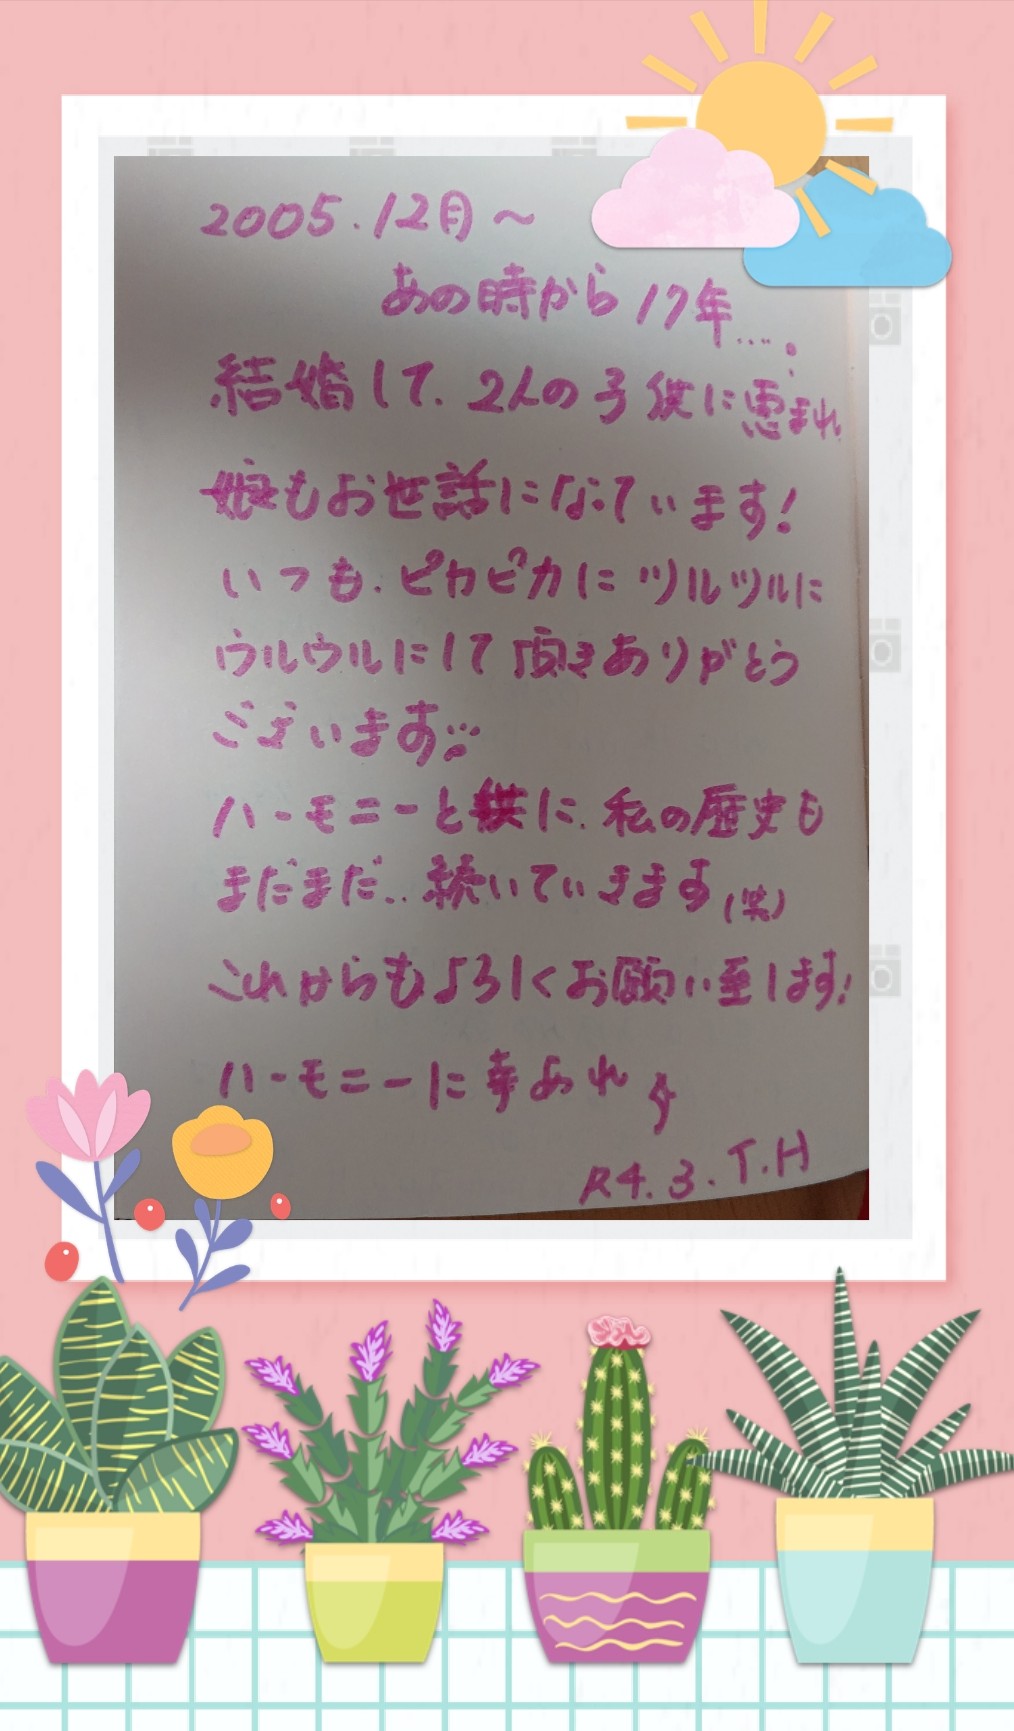 2005.12月～
あの時から17年....
結婚して、2人の子供に恵まれ
娘もお世話になっています!
いつも、ピカピカに ツルツルに
ウルウルにして頂きありがとう
ございます
ハーモニーと共に、私の歴史も
まだまだ..続いていきます(笑)
これからもよろしくお願い至します!
ハーモニーに幸あれ
R4.3.T.H